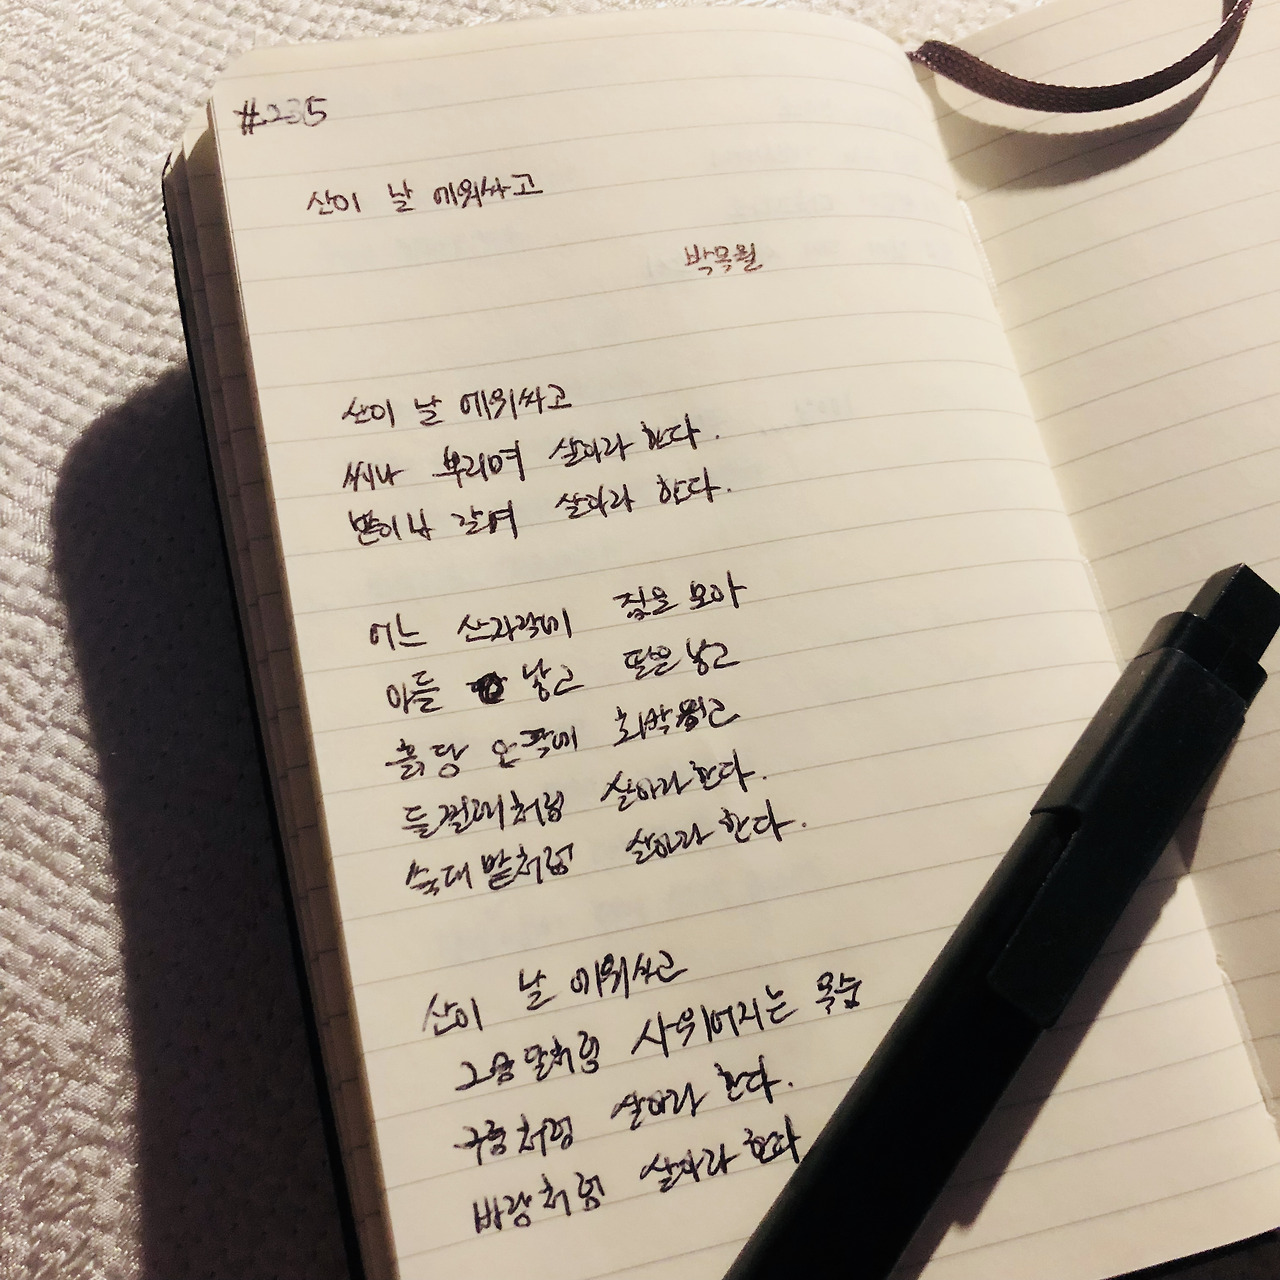 #235
산이 날 에워싸고
박목월
산이 날 에워싸고
씨나 뿌리며 살아라 한다.
밭이나 갈며 살아라 한다.
어느 산자락에 집을 모아
아들 낳고 딸을 낳고
흙담 안팎에 호박 심고
들찔레처럼 살아라 한다.
쑥대밭처럼 살아라 한다.
산이 날 에워싸고
그믐달처럼 사위어지는 목숨
구름처럼 살아라 한다.
바람처럼 살아라 한다